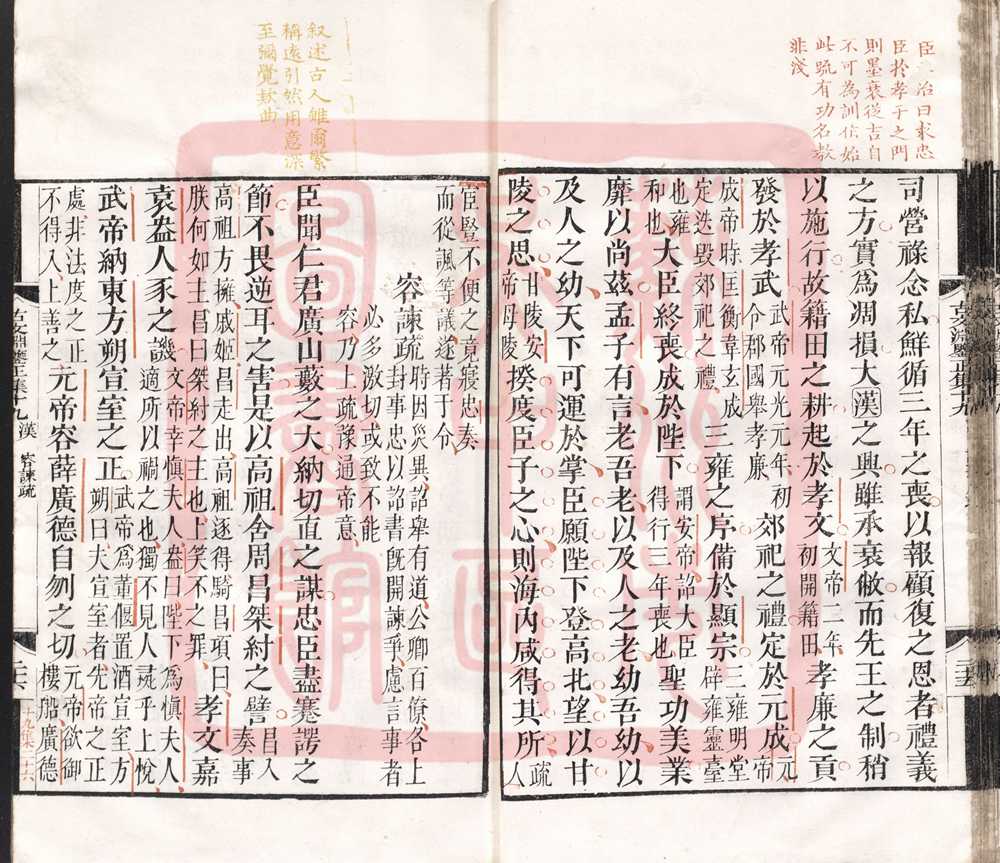 臣
治曰求忠
臣於孝子之門
則墨衰從吉自
不可為訓信始
此疏有功名教
非淺
司營祿念私鮮循三年之喪以報顧復之恩者禮義
之方實爲凋損大漢之興雖承衰敝而先王之制稍
以施行故籍田之耕起於孝文文帝二年初開籍田孝廉之貢
發於孝武武帝元光元年初令郡國舉孝廉郊祀之禮定於元成元帝
成帝時匡衡韋玄成定迭毀郊祀之禮三雍之序備於顯宗三雍明堂辟雍靈臺
也雍和也大臣終喪成於陛下謂安帝詔大臣得行三年喪也聖功美業
靡以尚茲孟子有言老吾老以及人之老幼吾幼以
及人之幼天下可運於掌臣願陛下登高北望以甘
陵之思甘陵安帝母陵揆度臣子之心則海內咸得其所疏人
宦豎不便之竟寢忠奏而從諷等議遂著于令
容諫疏時因災異詔舉有道公卿百僚各上封事忠以詔書旣開諫爭慮言事者
必多激切或致不能容乃上疏豫通帝意
臣聞仁君廣山藪之大納切直之謀忠臣盡謇諤之
節不畏逆耳之害是以高祖舍周昌桀紂之譬昌入奏事
高祖方擁戚姬昌走出高祖逐得騎昌項曰朕何如主昌曰桀紂之主也上笑不之罪孝文嘉
袁盎人豕之譏文帝幸愼夫人盎曰陛下爲愼夫人適所以禍之也獨不見人彘乎上悅
武帝納東方朔宣室之正武帝爲董偃置酒宣室方朔曰夫宣室者先帝之正
處非法度之正不得入上善之元帝容薛廣德自刎之切元帝欲御樓船廣德
叙述古人雖爾繁
稱遠引然用意深
至彌覺欵曲
漢
容諫疏